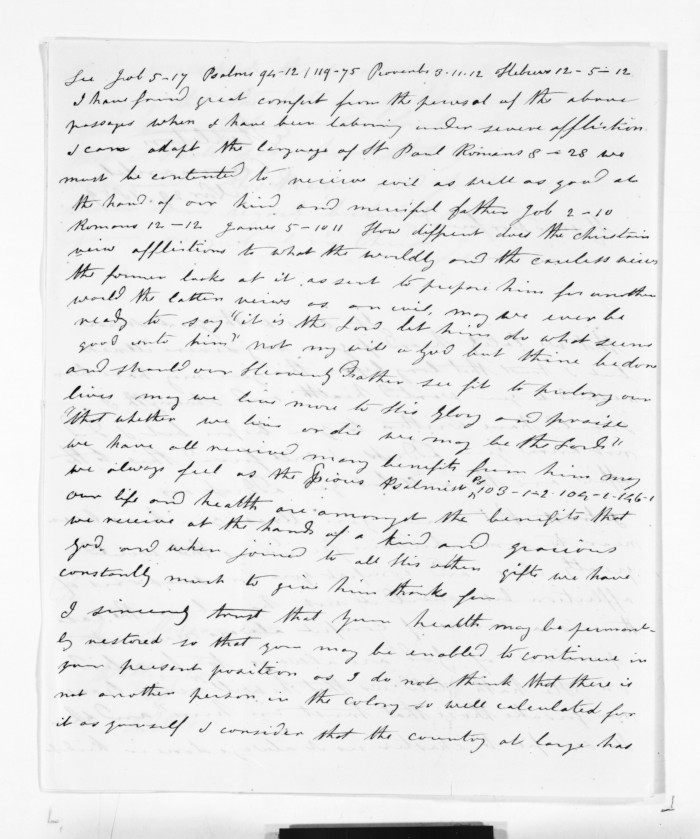 See Job 5-17 Psalms 94-12/119-75 Proverbs 3.11.12 Hebrews 12-5-12
I have found great comfort from the perusal of the above
passages when I have been laboring under severe affliction.
I can adapt the language of St Paul Romans 8-28 we
must be contented to receive evil as well as good at
the hand of our kind and merciful father Job 2-10
Romans 12-12 James 5-10 11 How diffrent does the christain
view afflictions to what the worldly and the careless views
the former looks at it as sent to prepare him for another
world the latter views as an evil, may we ever be
ready to say "it is the Lord let him do what seems
good unto him" not my will o God but thine be done
and should our Heavenly Father see fit to prolong our
lives may we live more to His Glory and praise
"that whether we live or die we may be the Lords"
we have all received many benefits from him may
we always feel as the Pious Psalmist Ps 103-1-2-104-1-146-1
our life and health are amongst the benefits that
we receive at the hands of a kind and gracious
God and when joined to all His other gifts we have
constantly much to give him thanks for
I sincerely trust that your health may be permant-
ly restored so that you may be enabled to continue in
your present position as I do not think that there is
not another person in the colony so well calculated for
it as yourself I consider that the country at large has